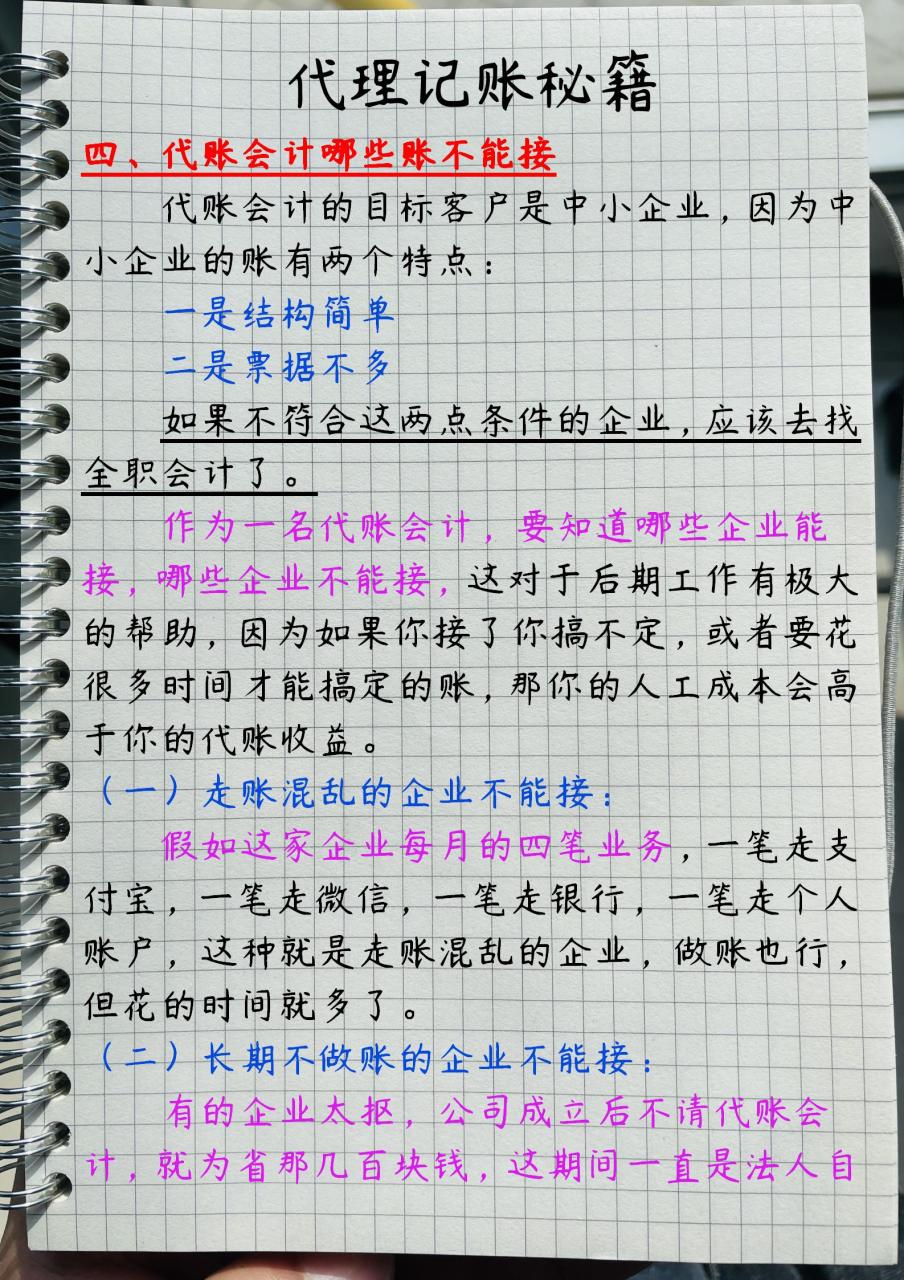 代理记账秘籍
四、代账会计哪些账不能接
代账会计的目标客户是中小企业，因为中
小企业的账有两个特点：
一是结构简单
二是票据不多
如果不符合这两点条件的企业，应该去找
全职会计了。
作为一名代账会计，要知道哪些企业能
接，哪些企业不能接，这对于后期工作有极大
的帮助，因为如果你接了你搞不定，或者要花
很多时间才能搞定的账，那你的人工成本会高
于你的代账收益。
（一）走账混乱的企业不能接：
假如这家企业每月的四笔业务，一笔走支
付宝，一笔走微信，一笔走银行，一笔走个人
账户，这种就是走账混乱的企业，做账也行，
但花的时间就多了。
（二）长期不做账的企业不能接：
有的企业太抠，公司成立后不请代账会
计，就为省那几百块钱，这期间一直是法人自